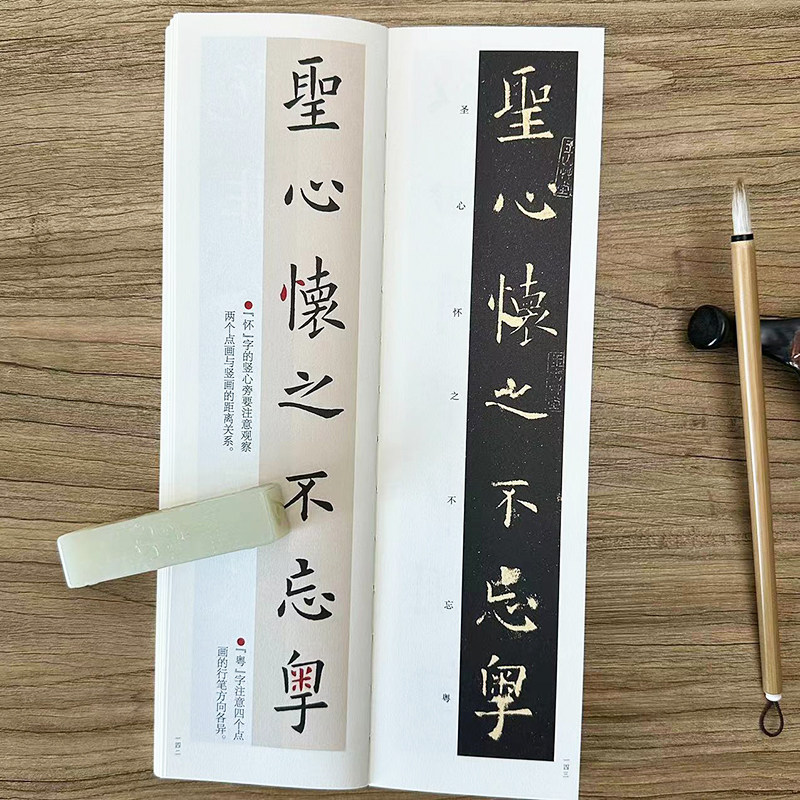 聖心懷之不忘粤
『怀』字的竖心旁要注意观察
两个点画与竖画的距离关系。
『粤』字注意四个点
画的行笔方向各异。
一四二
聖心懷之不忘粤
圣心怀之不忘粤
一四三